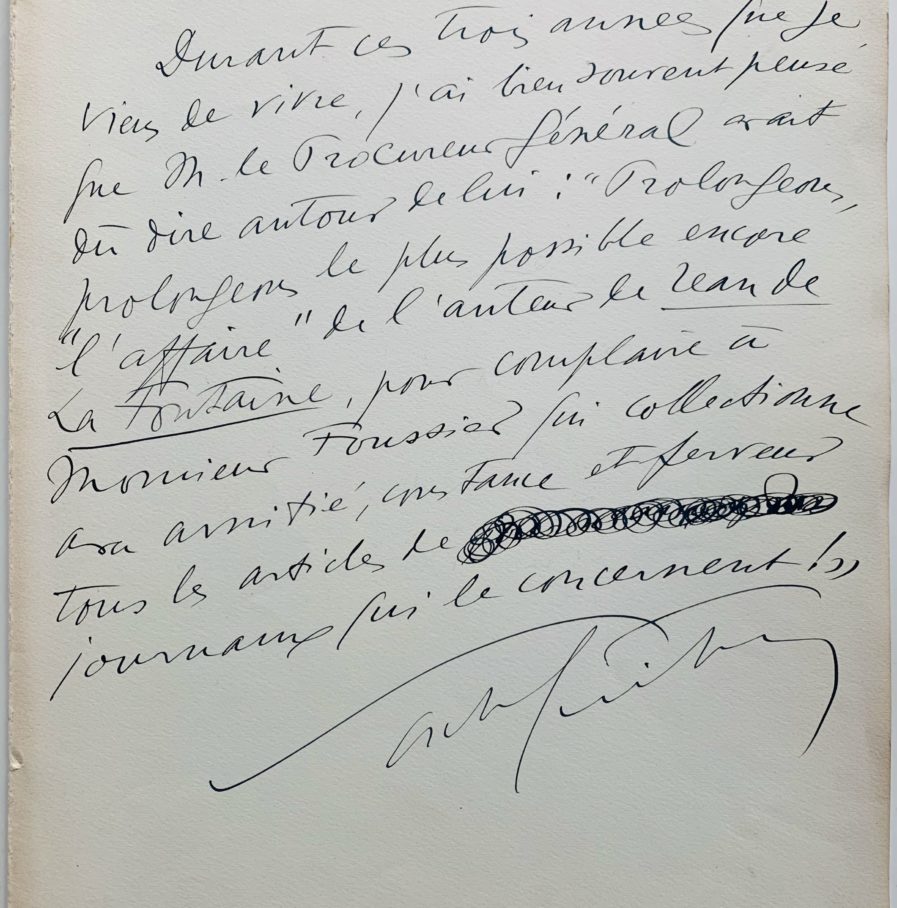 Durant ces trois années que je
viens de vivre, j'ai bien souvent pensé
que M. le Procureur Général avait
dû dire autour de lui : "Prolongeons,
prolongeons le plus possible encore
"l'affaire" de l'auteur de Jean de
La Fontaine, pour complaire à
Monsieur Foussier qui collectionne
avec amitié, constance et ferveur
tous les articles de
journaux qui le concernent !»